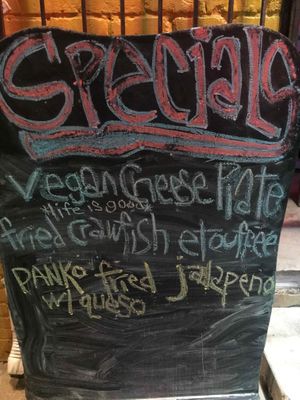 Specials
Vegan Cheese Plate
#life is good
fried Crawfish etouffee
Panko fried jalapeno
w/ queso